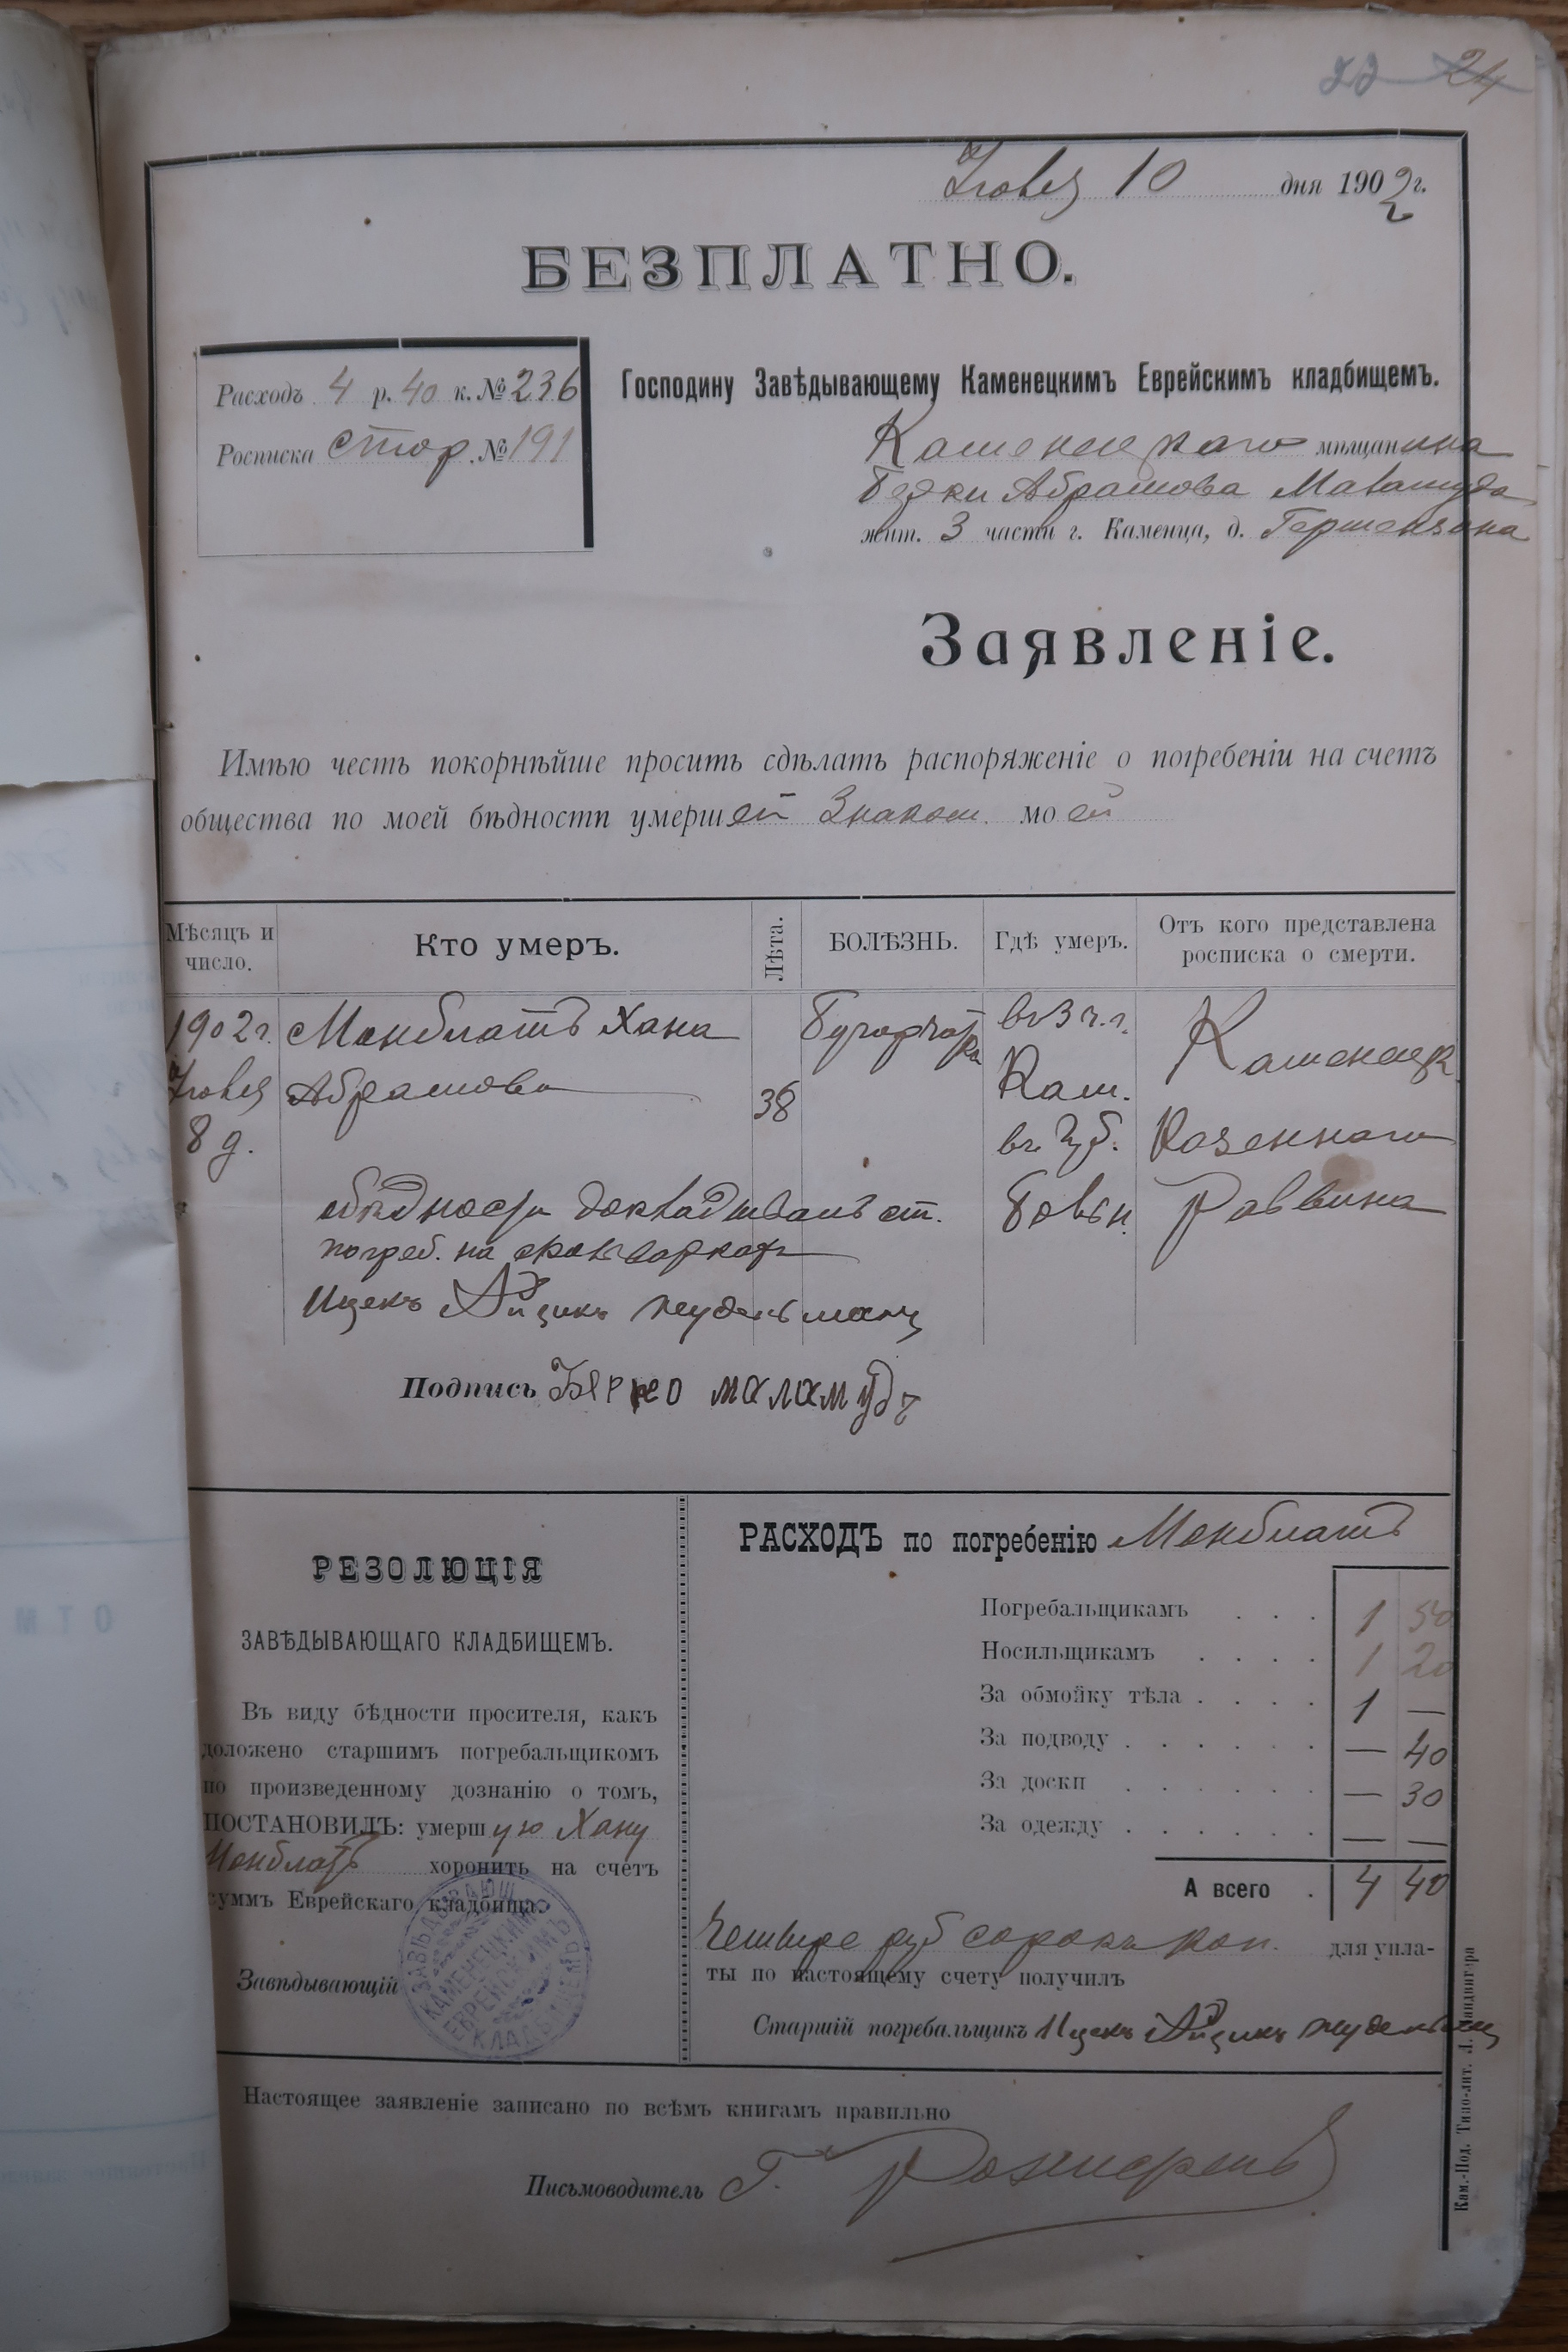 22 24
Іюля 10 дня 1902 г.
БЕЗПЛАТНО.
Расходъ 4 р. 40 к. № 236
Росписка стор. № 191
Господину Завѣдывающему Каменецкимъ Еврейскимъ кладбищемъ.
Каменецкаго мѣщанина
Берки Абрамова Маламуда
жит. 3 части г. Каменца, д. Гершензона
Заявленіе.
Имѣю честь покорнѣйше просить сдѣлать распоряженіе о погребеніи на счетъ
общества по моей бѣдности умершей Знаком. моей
Мѣсяцъ и число. Кто умеръ. Лѣта. БОЛѢЗНЬ. Гдѣ умеръ. Отъ кого представлена росписка о смерти.
1902 г. Монблатъ Хана Бугорчатка въ 3 ч. г. Каменецк.
Іюля Абрамова 38 Кам.
8 д. въ Губ. Казеннаго
обѣдности докладывалъ ст. больн. Раввина
погреб. на
Ицекъ Айзикъ
Подпись Берко маламудъ
РЕЗОЛЮЦІЯ
ЗАВѢДЫВАЮЩАГО КЛАДБИЩЕМЪ.
Въ виду бѣдности просителя, какъ
доложено старшимъ погребальщикомъ
по произведенному дознанію о томъ,
ПОСТАНОВИЛЪ: умершую Хану
Монблатъ хоронить на счетъ
суммъ Еврейскаго кладбища.
Завѣдывающій
ЗАВѢДЫВАЮЩ. КАМЕНЕЦКИМЪ ЕВРЕЙСКИМЪ КЛАДБИЩЕМЪ
РАСХОДЪ по погребенію Монблатъ
Погребальщикамъ . . . 1 50
Носильщикамъ . . . . 1 20
За обмойку тѣла . . . . 1 —
За подводу . . . . . . — 40
За доски . . . . . . — 30
За одежду . . . . . . — —
А всего . 4 40
Четыре руб сорокъ коп. для упла-
ты по настоящему счету получилъ
Старшій погребальщикъ Ицекъ Айзикъ
Настоящее заявленіе записано по всѣмъ книгамъ правильно
Письмоводитель Г.
Кам.-Под. Типо-лит. Л. Ландвигера